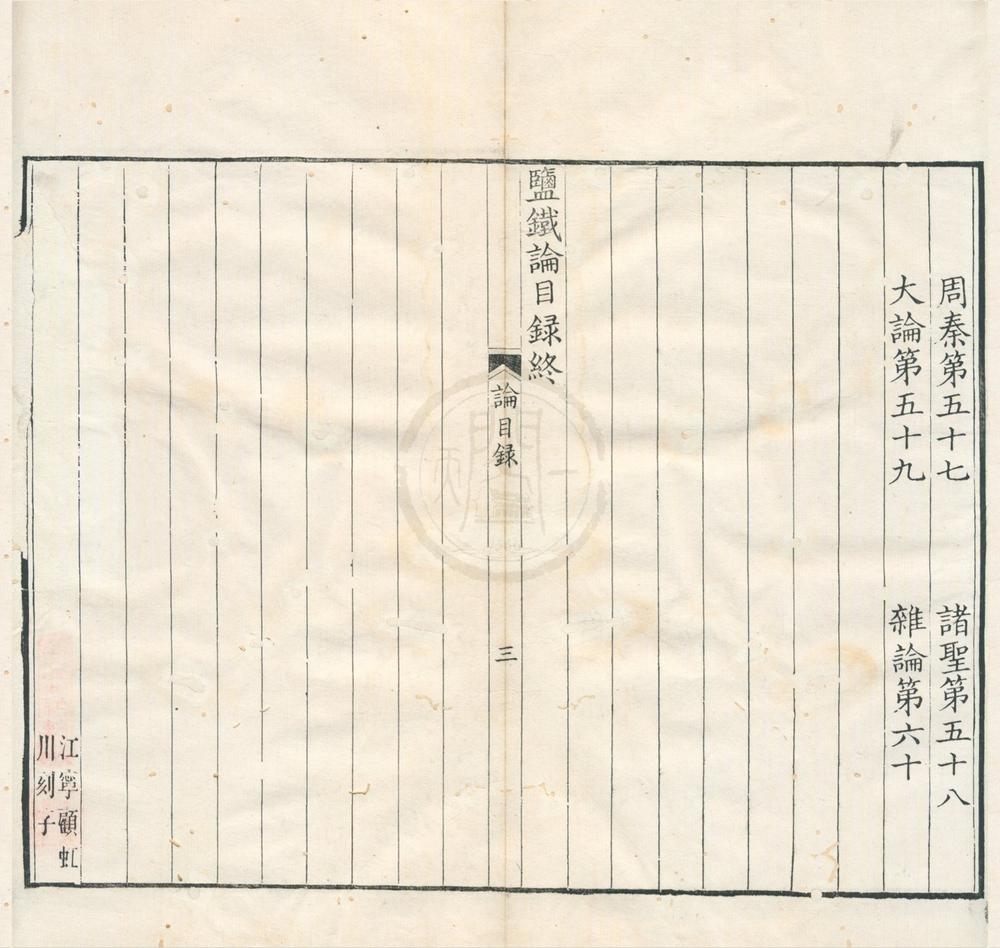 周秦第五十七
諸聖第五十八
大論第五十九
雜論第六十
鹽鐵論目録終
論目録
三
江寧顧虹
川刻子